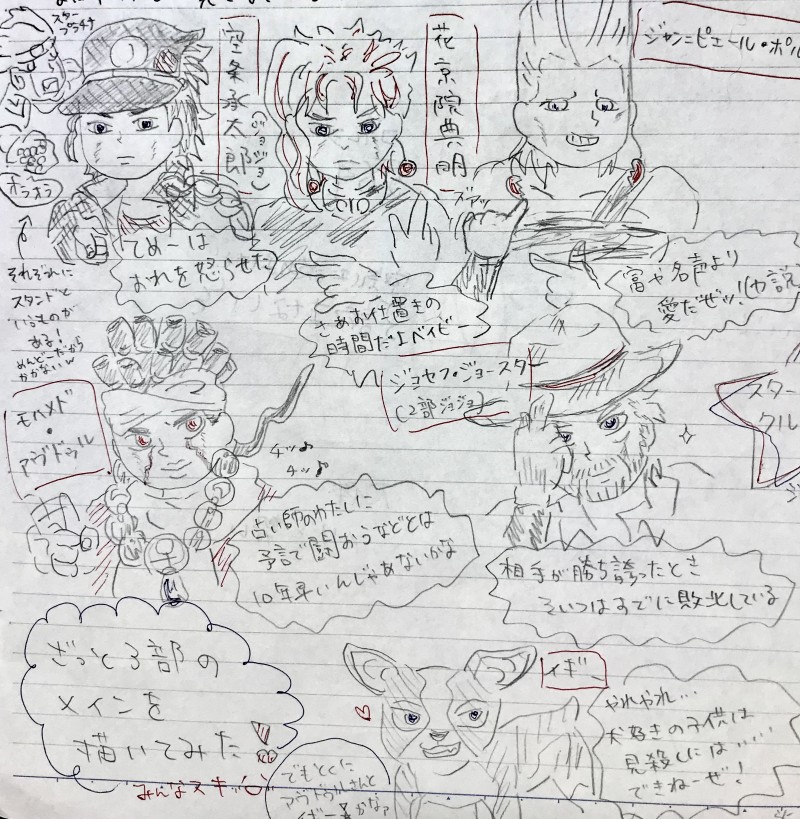 スター
プラチナ
空条承太郎
(ジョジョ)
花京院典明
ジャン=ピエール・ポル
オラオラ
てめーは
おれを怒らせた
ズアッ
それぞれに
スタンドと
いうものが
ある!
めんどーだから
かかないw
さぁお仕置きの
時間だよベイビー
富や名声より
愛だぜッ!
モハメド
・
アヴドゥル
ジョセフ・ジョースター
(2部ジョジョ)
スター
クル
チッ♪
チッ♪
占い師のわたしに
予言で闘おうなどとは
10年早いんじゃあないかな
相手が勝ち誇ったとき
そいつはすでに敗北している
ざっと3部の
メインを
描いてみた
みんなスキッ
イギー
やれやれ…
犬好きの子供は
見殺しには……
できねーぜ!
でもとくに
アヴドゥルさんと
イギー
かなァ